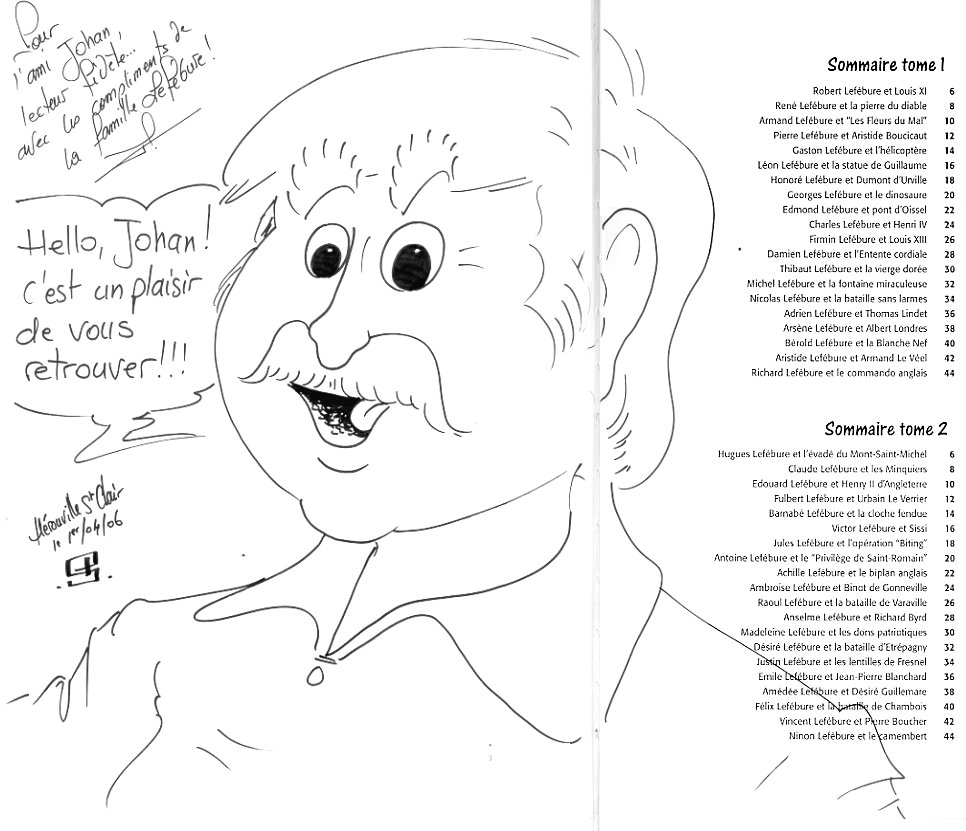 Pour
l'ami Johan,
lecteur fidèle...
avec les compliments de
la famille Lefébure!
Hello, Johan!
c'est un plaisir
de vous
retrouver!!!
Hérouville St Clair
le 1er/04/06
Sommaire tome 1
Robert Lefébure et Louis XI 6
René Lefébure et la pierre du diable 8
Armand Lefébure et "Les Fleurs du Mal" 10
Pierre Lefébure et Aristide Boucicaut 12
Gaston Lefébure et l'hélicoptère 14
Léon Lefébure et la statue de Guillaume 16
Honoré Lefébure et Dumont d'Urville 18
Georges Lefébure et le dinosaure 20
Edmond Lefébure et pont d'Oissel 22
Charles Lefébure et Henri IV 24
Firmin Lefébure et Louis XIII 26
Damien Lefébure et l'Entente cordiale 28
Thibaut Lefébure et la vierge dorée 30
Michel Lefébure et la fontaine miraculeuse 32
Nicolas Lefébure et la bataille sans larmes 34
Adrien Lefébure et Thomas Lindet 36
Arsène Lefébure et Albert Londres 38
Bérold Lefébure et la Blanche Nef 40
Aristide Lefébure et Armand Le Véel 42
Richard Lefébure et le commando anglais 44
Sommaire tome 2
Hugues Lefébure et l'évadé du Mont-Saint-Michel 6
Claude Lefébure et les Minquiers 8
Edouard Lefébure et Henry II d'Angleterre 10
Fulbert Lefébure et Urbain Le Verrier 12
Barnabé Lefébure et la cloche fendue 14
Victor Lefébure et Sissi 16
Jules Lefébure et l'opération "Biting" 18
Antoine Lefébure et le "Privilège de Saint-Romain" 20
Achille Lefébure et le biplan anglais 22
Ambroise Lefébure et Binot de Gonneville 24
Raoul Lefébure et la bataille de Varaville 26
Anselme Lefébure et Richard Byrd 28
Madeleine Lefébure et les dons patriotiques 30
Désiré Lefébure et la bataille d'Etrépagny 32
Justin Lefébure et les lentilles de Fresnel 34
Emile Lefébure et Jean-Pierre Blanchard 36
Amédée Lefébure et Désiré Guillemare 38
Félix Lefébure et la bataille de Chambois 40
Vincent Lefébure et Pierre Boucher 42
Ninon Lefébure et le camembert 44